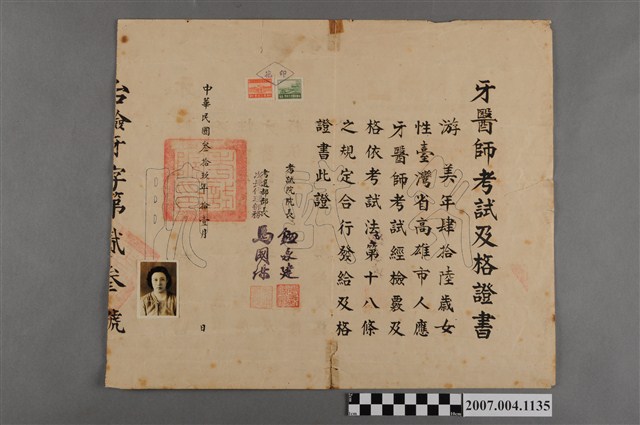 牙醫師考試及格證書
游　美年肆拾陸歲女
性臺灣省高雄市人應
牙醫師考試經檢覈及
格依考試法第十八條
之規定合行發給及格
證書此證
考試院院長
考選部部長
馬國琳
中華民國叁拾玖年拾壹月
日
台檢牙字第貳叁號
2007.004.1135